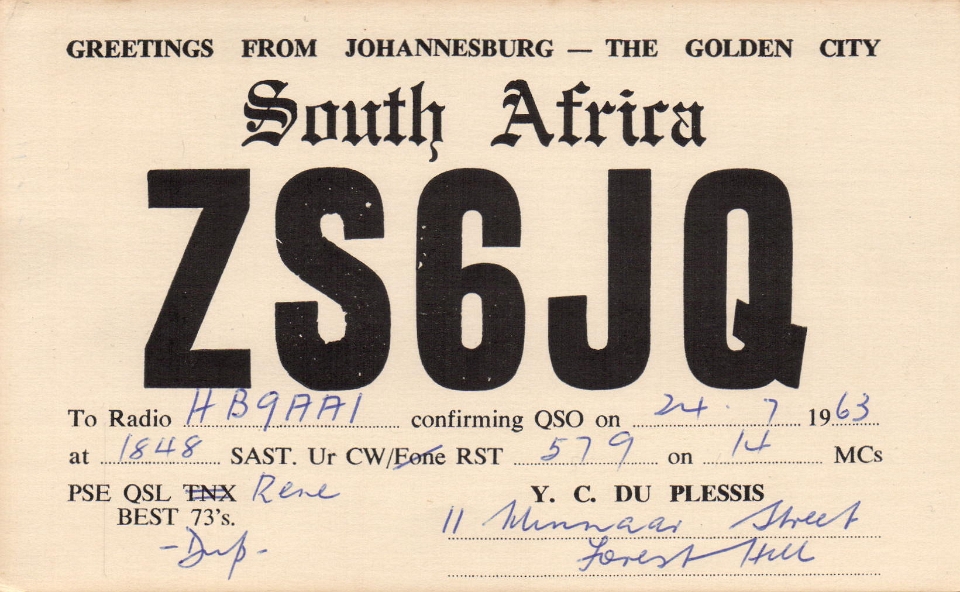 GREETINGS FROM JOHANNESBURG — THE GOLDEN CITY
South Africa
ZS6JQ
To Radio HB9AAI confirming QSO on 24 . 7 1963
at 1848 SAST. Ur CW/Fone RST 579 on 14 MCs
PSE QSL TNX Rene Y. C. DU PLESSIS
BEST 73's. 11 Minnaar Street
-Dup- Forest Hill